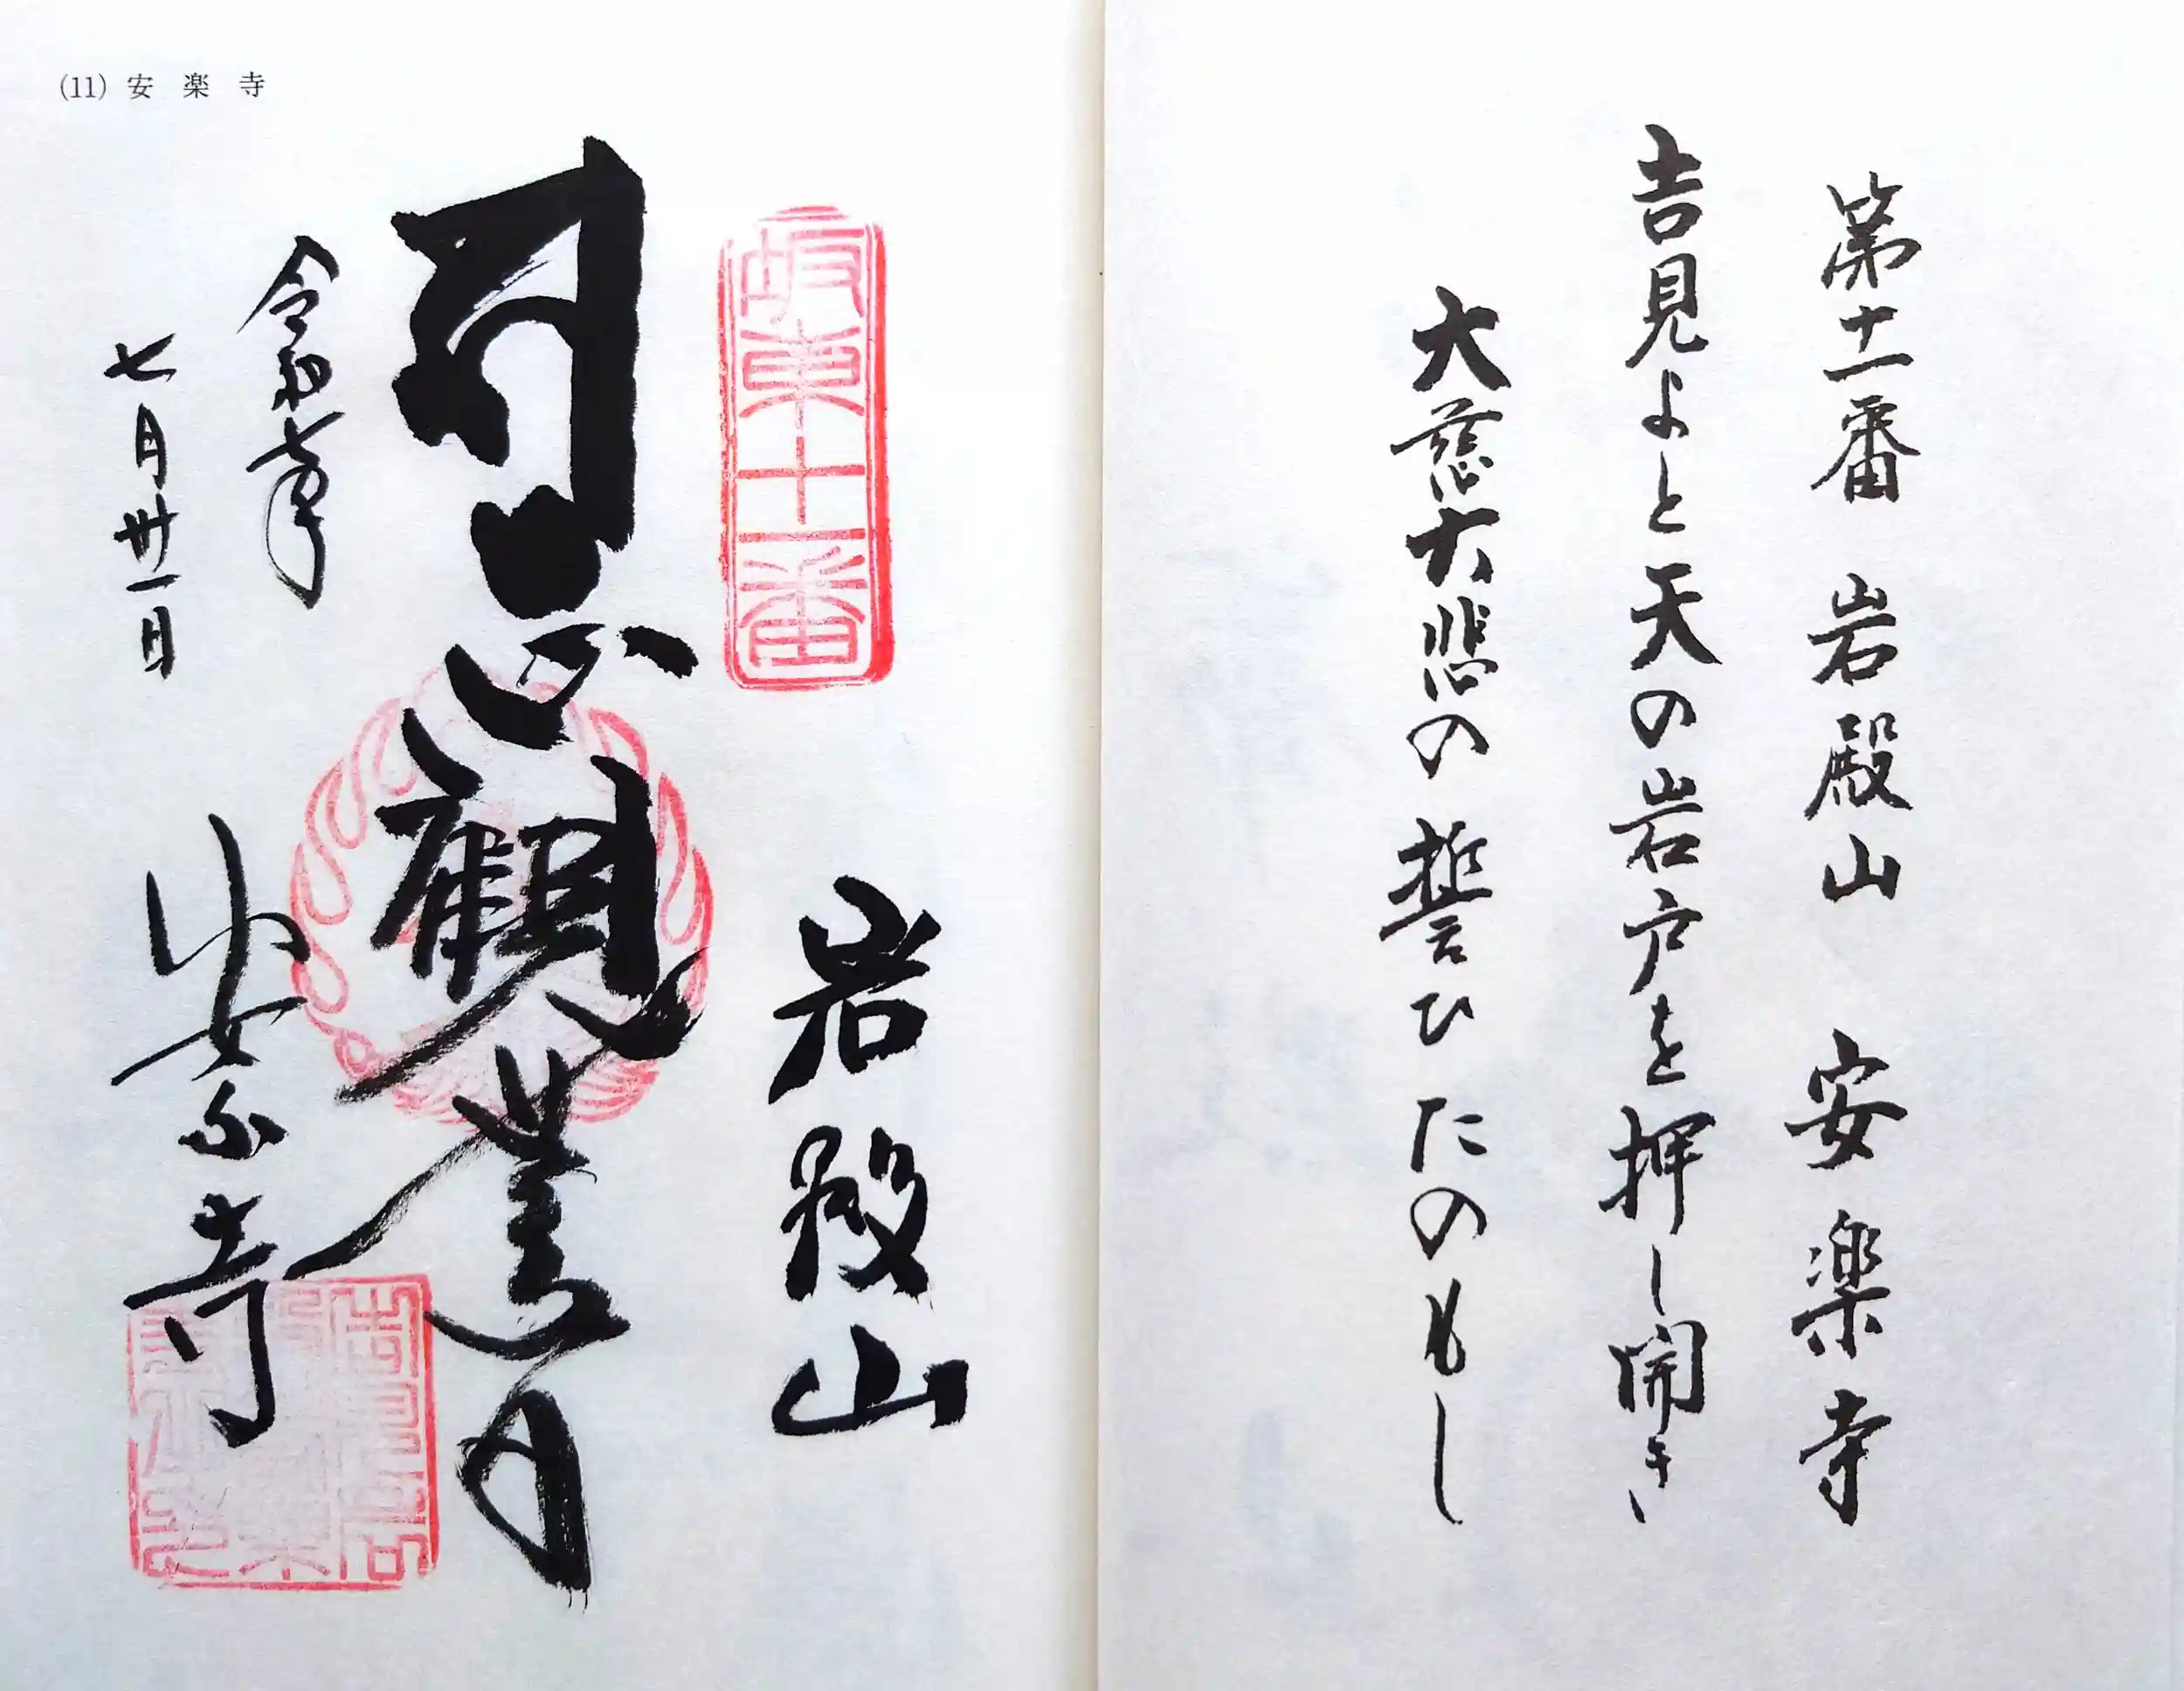 第十一番 岩殿山 安楽寺
吉見よと天の岩戸を押し開き
大慈大悲の誓ひたのもし
(11) 安楽寺
坂東十一番
岩殿山
觀世音
令和七年
七月卅一日
安楽寺